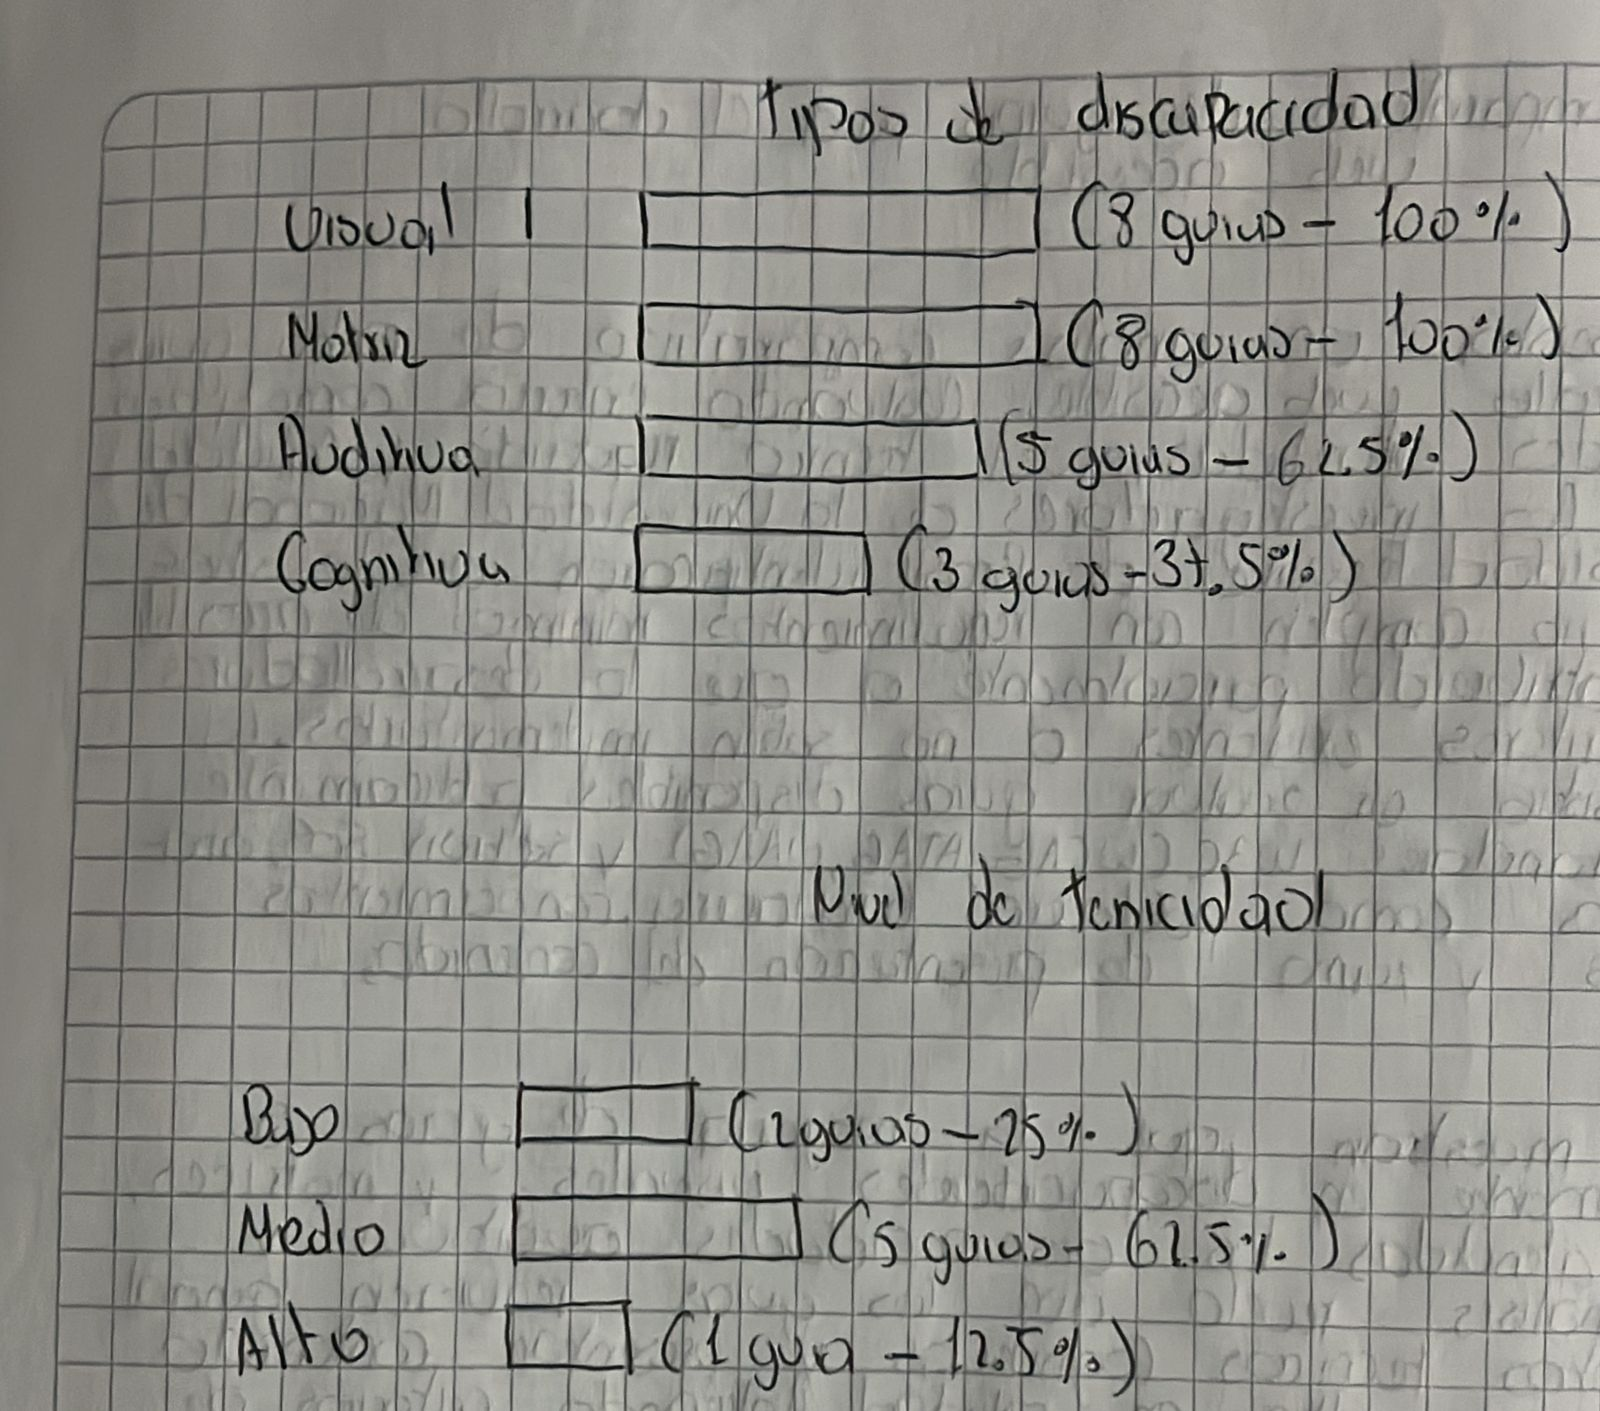 Tipos de discapacidad
Visual | (8 guias - 100%)
Motriz (8 guias - 100%)
Auditiva (5 guias - 62.5%)
Cognitiva (3 guias - 37.5%)
Nivel de tenicidad
Bajo (2 guias - 25%)
Medio (5 guias - 62.5%)
Alto (1 guia - 12.5%)